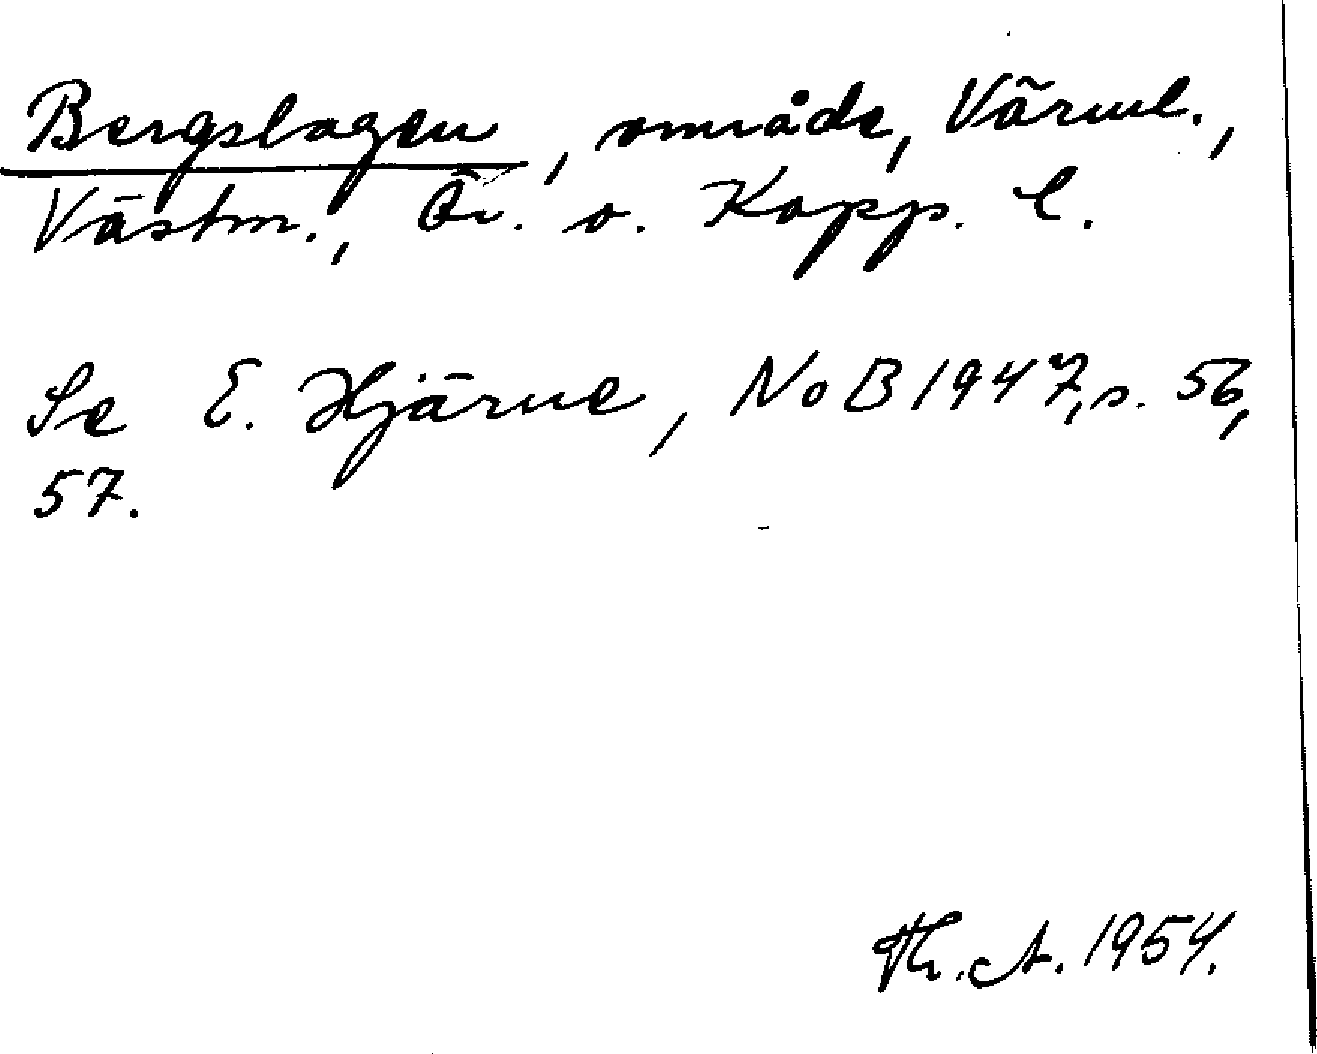 Bergslagen, område, Värml.,
Västm., Ör. o. Kopp. l.
Se E. Hjärne, NoB 1947, s. 56,
57.
Th. A. 1954.